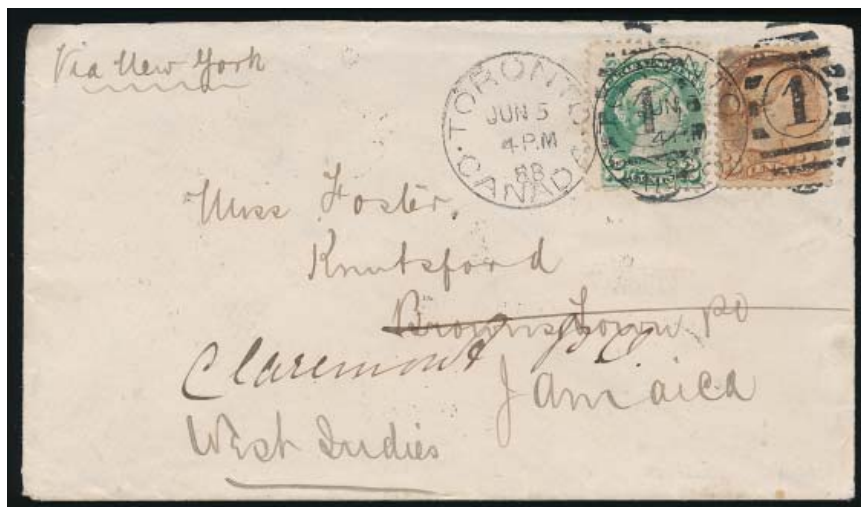 Via New York
TORONTO
JUN 5
4 P.M
88
CANADA
1
1
Miss Foster,
Knutsford
Brownstown PO
Claremont PO
Jamaica
West Indies